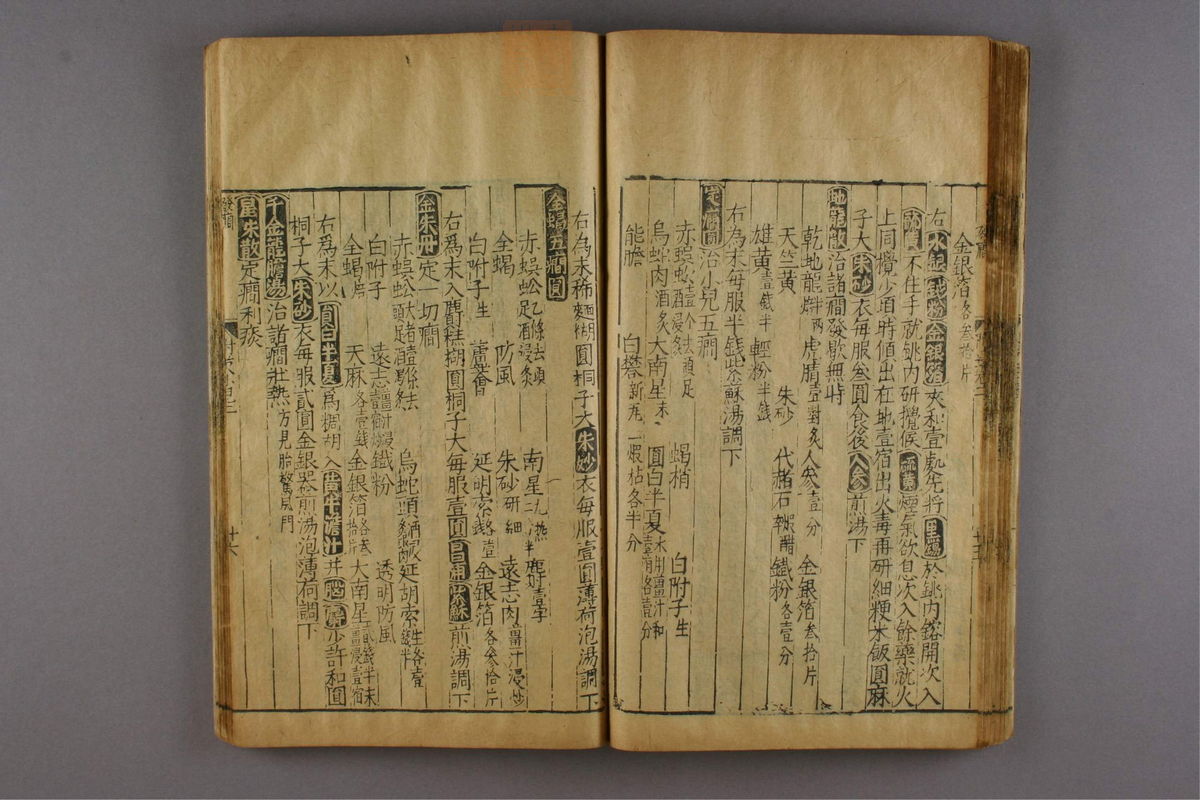 金銀箔各叁拾片
右水銀砂粉金銀箔夾和壹處先將黑錫於銚內鎔開次入
硫黄不住手就銚內研攪候硫黄煙氣欲息次入餘藥就火
上同攪少頃時傾出在地壹宿出火毒再研細粳米飯圓麻
子大朱砂衣每服叁圓食後人參煎湯下
地龍散治諸癎發歇無時
乾地龍焠兩 虎睛壹對炙 人參壹分 金銀箔叁拾片
天竺黄 朱砂 代赭石煅醋 鐵粉各壹分
雄黄壹錢半 輕粉半錢
右為末每服半錢紫蘇湯調下
定癎圓治小兒五癎
赤蜈蚣壹个去頭足酒浸炙 蝎梢 白附子生
烏蛇肉酒炙 大南星末 圓白半夏末用薑汁和各壹分
熊膽 白礬新瓦煅枯各半分
右為末稀麵糊圓桐子大朱砂衣每服壹圓薄荷泡湯調下
全蝎五癎圓
赤蜈蚣乙條去頭足酒浸炙 南星 麝壹字
全蝎 防風 朱砂研細 遠志肉薑汁浸炒
白附子生 蘆薈 延胡索各壹錢 金銀箔各叁拾片
右為末入麝糕糊圓桐子大每服壹圓菖蒲紫蘇煎湯調下
金朱丹定一切癎
赤蜈蚣大者壹條去頭足酒炙 烏蛇頭 延胡索生各壹錢半
白附子 遠志薑汁浸壹宿焙 鐵粉 透明防風
全蝎焙 天麻各壹錢 金銀箔各叁拾片 大南星壹錢半末薑浸壹宿
右為末以圓白半夏為稠糊入黄牛膽汁并腦麝少許和圓
桐子大朱砂衣每服貳圓金銀器煎湯泡薄荷調下
千金龍膽湯治諸癎壯熱方見胎驚風門
星朱散定癎利痰